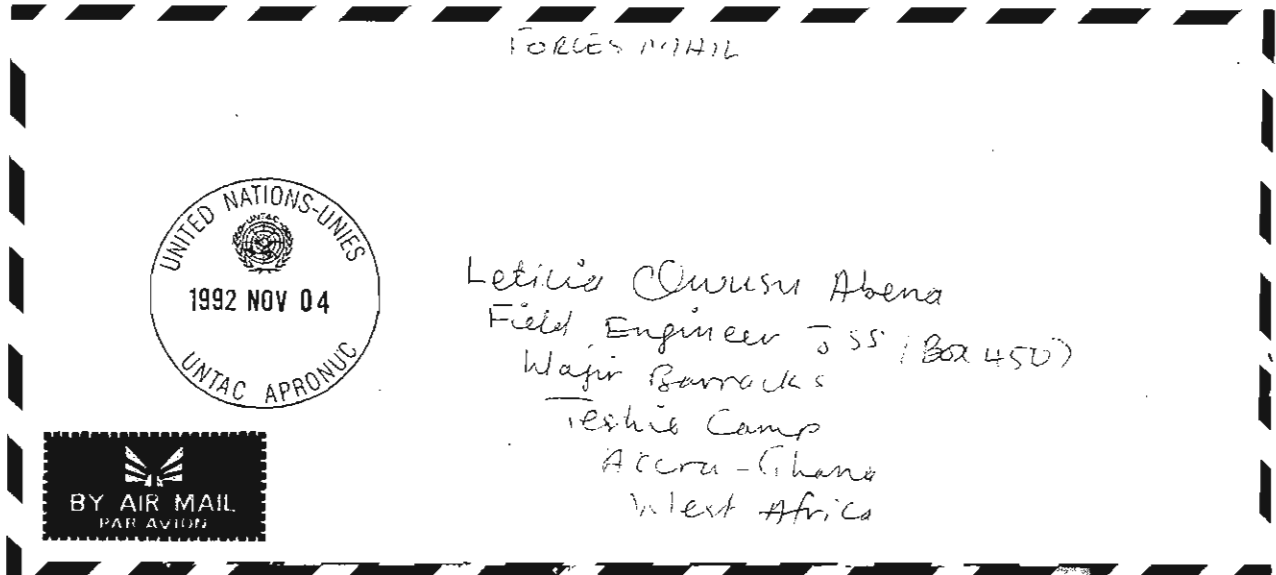 FORCES MAIL
UNITED NATIONS-UNIES
UNTAC
1992 NOV 04
UNTAC APRONUC
Leticia Owusu Abena
Field Engineer JSS (Box 450)
Wajir Barracks
Teshie Camp
Accra-Ghana
West Africa
BY AIR MAIL
PAR AVION